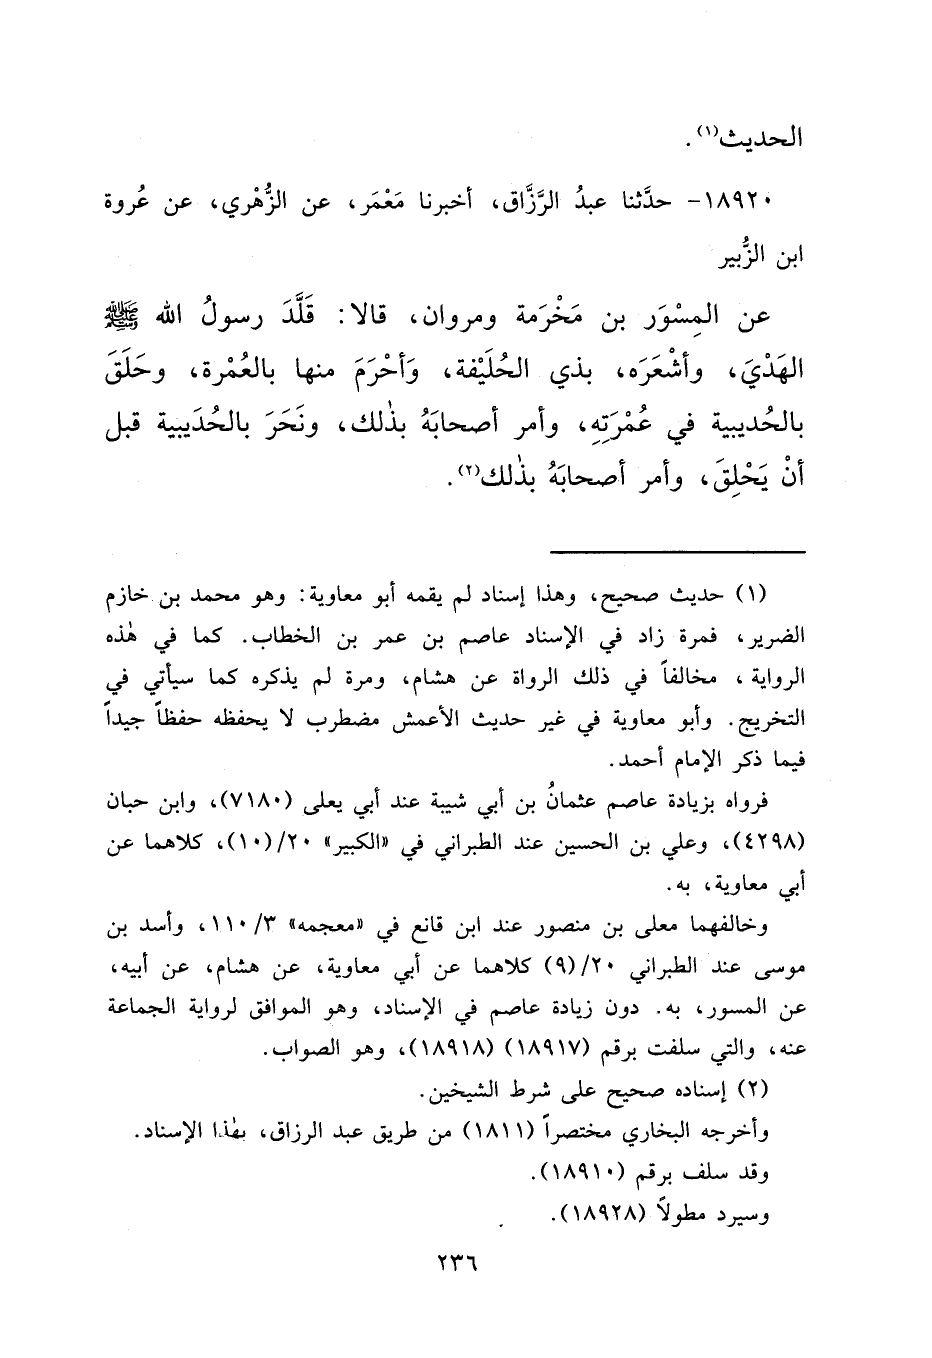 الحديث(١).
١٨٩٢٠- حدَّثنا عبدُ الرَّزَّاق، أخبرنا مَعْمَر، عن الزُّهْري، عن عُروة
ابن الزُّبير
عن المِسْوَر بن مَخْرَمة ومروان، قالا: قَلَّدَ رسولُ الله ﷺ
الهَدْيَ، وأشْعَرَه، بذي الحُلَيْفة، وَأحْرَمَ منها بالعُمْرة، وحَلَقَ
بالحُديبية في عُمْرَتِهِ، وأمر أصحابَهُ بذٰلك، ونَحَرَ بالحُدَيبية قبل
أنْ يَحْلِقَ، وأمر أصحابَهُ بذٰلك(٢).
(١) حديث صحيح، وهذا إسناد لم يقمه أبو معاوية: وهو محمد بن خازم
الضرير، فمرة زاد في الإسناد عاصم بن عمر بن الخطاب. كما في هٰذه
الرواية، مخالفاً في ذلك الرواة عن هشام، ومرة لم يذكره كما سيأتي في
التخريج. وأبو معاوية في غير حديث الأعمش مضطرب لا يحفظه حفظاً جيداً
فيما ذكر الإمام أحمد.
فرواه بزيادة عاصم عثمانُ بن أبي شيبة عند أبي يعلى (٧١٨٠)، وابن حبان
(٤٢٩٨)، وعلي بن الحسين عند الطبراني في «الكبير» ٢٠/(١٠)، كلاهما عن
أبي معاوية، به.
وخالفهما معلى بن منصور عند ابن قانع في «معجمه» ١١٠/٣، وأسد بن
موسى عند الطبراني ٢٠/(٩) كلاهما عن أبي معاوية، عن هشام، عن أبيه،
عن المسور، به. دون زيادة عاصم في الإسناد، وهو الموافق لرواية الجماعة
عنه، والتي سلفت برقم (١٨٩١٧) (١٨٩١٨)، وهو الصواب.
(٢) إسناده صحيح على شرط الشيخين.
وأخرجه البخاري مختصراً (١٨١١) من طريق عبد الرزاق، بهٰذا الإسناد.
وقد سلف برقم (١٨٩١٠).
وسيرد مطولاً (١٨٩٢٨).
٢٣٦